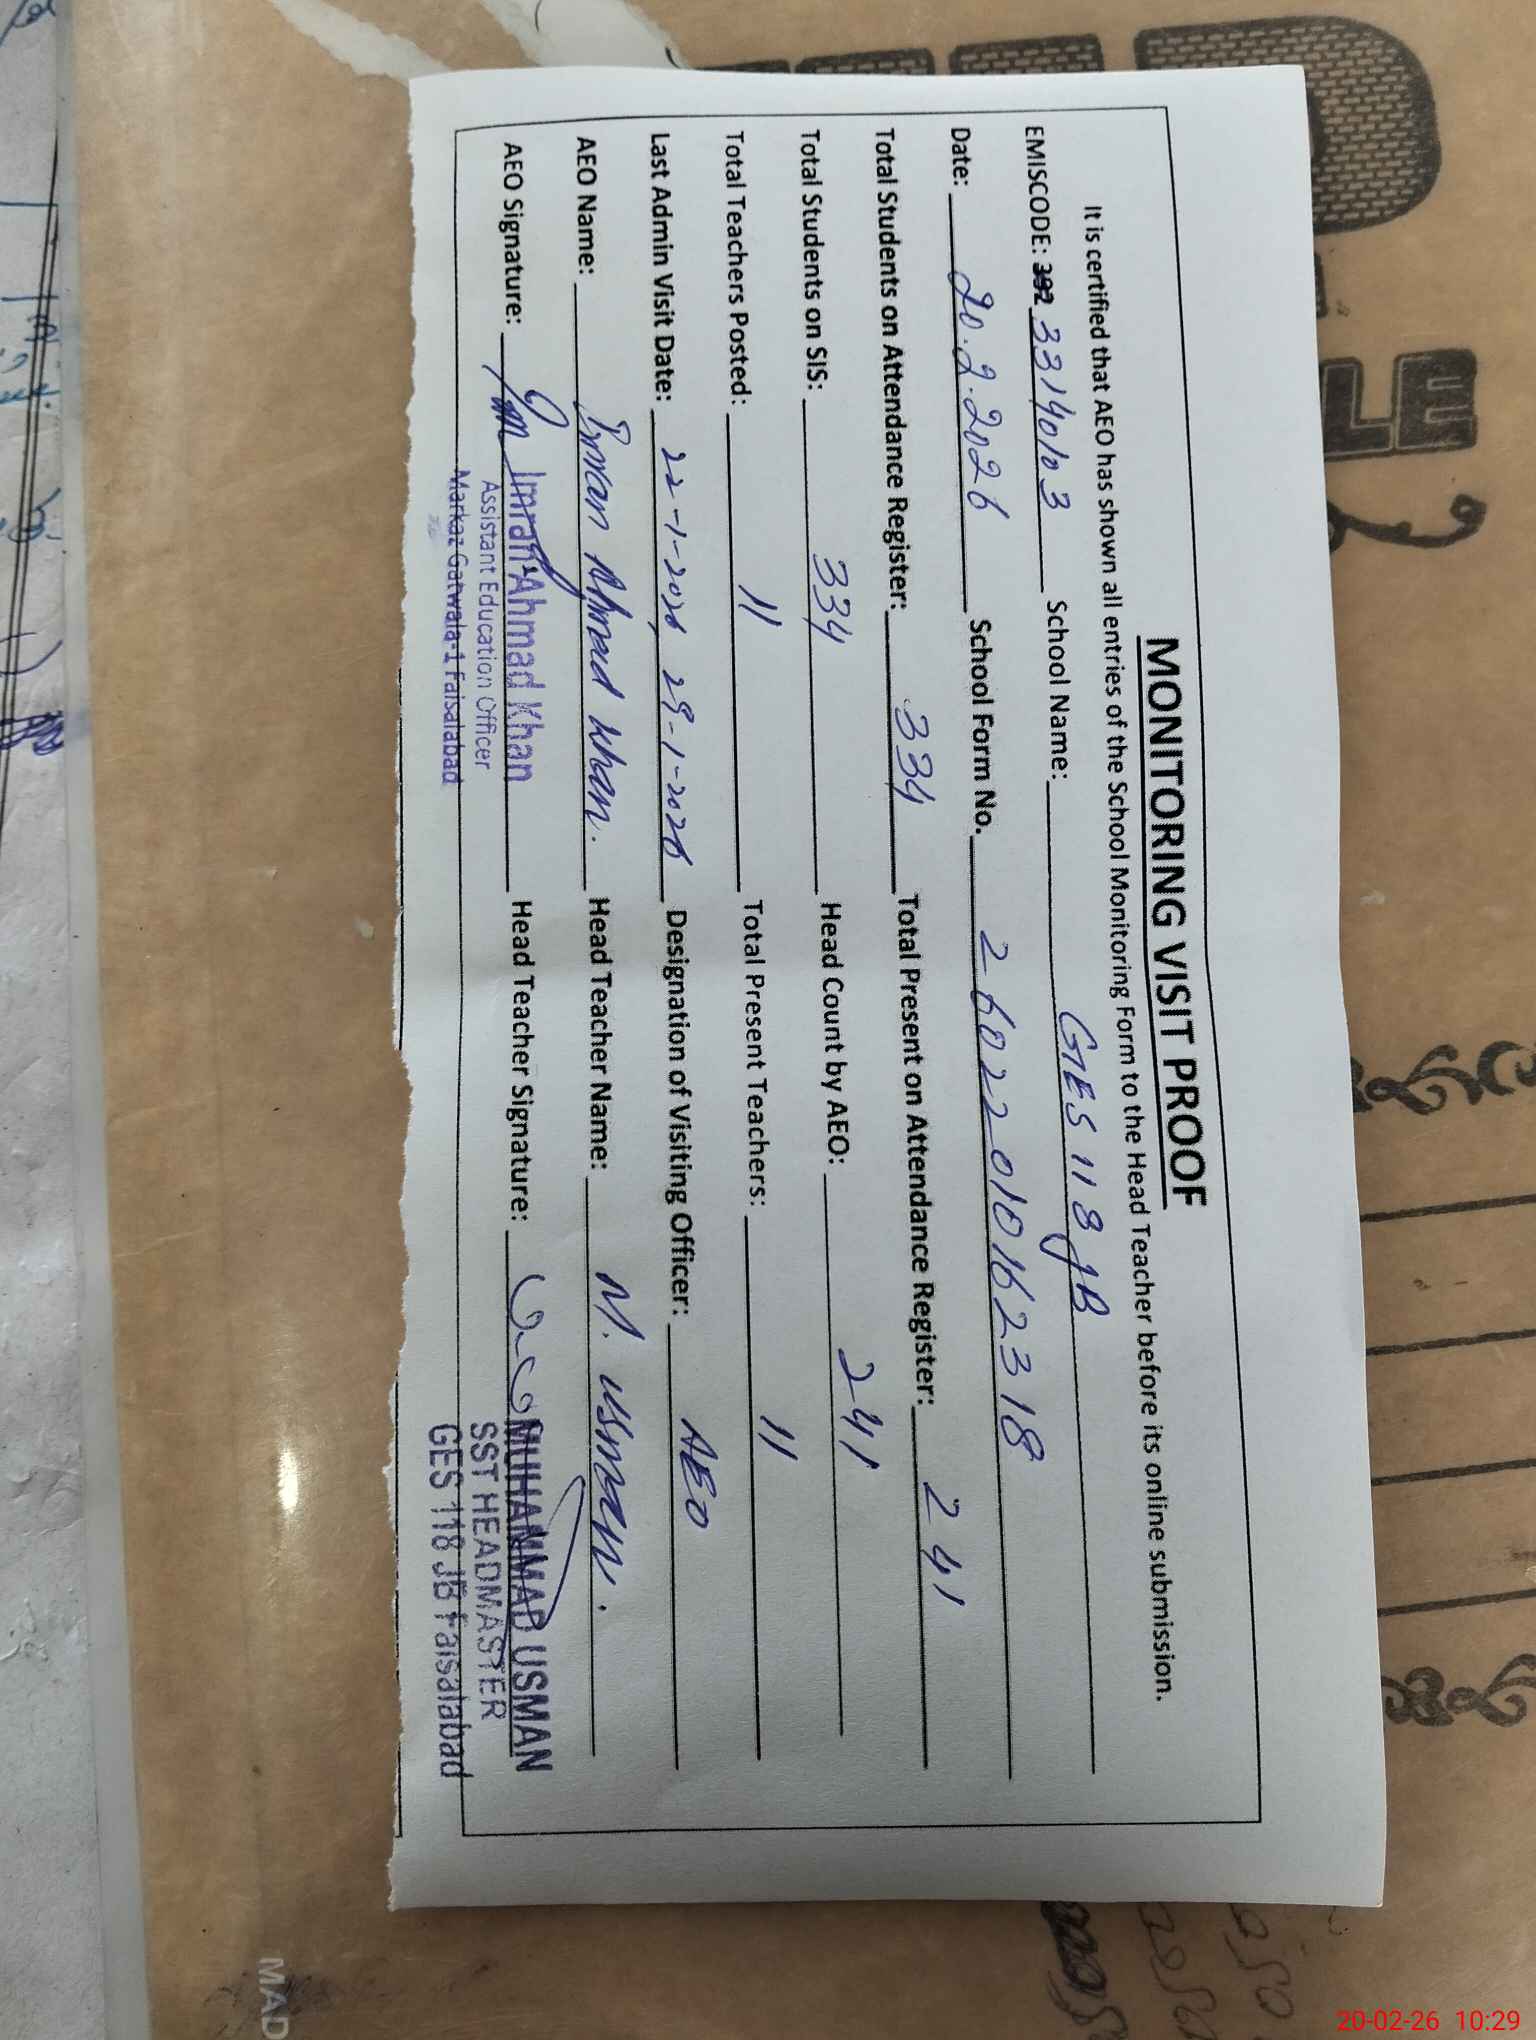 MONITORING VISIT PROOF
It is certified that AEO has shown all entries of the School Monitoring Form to the Head Teacher before its online submission.
EMISCODE: 392 33140103 School Name: GES 118 JB
Date: 20.2.2026 School Form No. 26022010162318
Total Students on Attendance Register: 334 Total Present on Attendance Register: 241
Total Students on SIS: 334 Head Count by AEO: 241
Total Teachers Posted: 11 Total Present Teachers: 11
Last Admin Visit Date: 22-1-2026, 29-1-2026 Designation of Visiting Officer: AEO
AEO Name: Imran Ahmad Khan. Head Teacher Name: M. Usman.
AEO Signature: Head Teacher Signature:
Imran Ahmad Khan
Assistant Education Officer
Markaz Gatwala-1 Faisalabad
MUHAMMAD USMAN
SST HEADMASTER
GES 118 JB Faisalabad
MAD
20-02-26 10:29